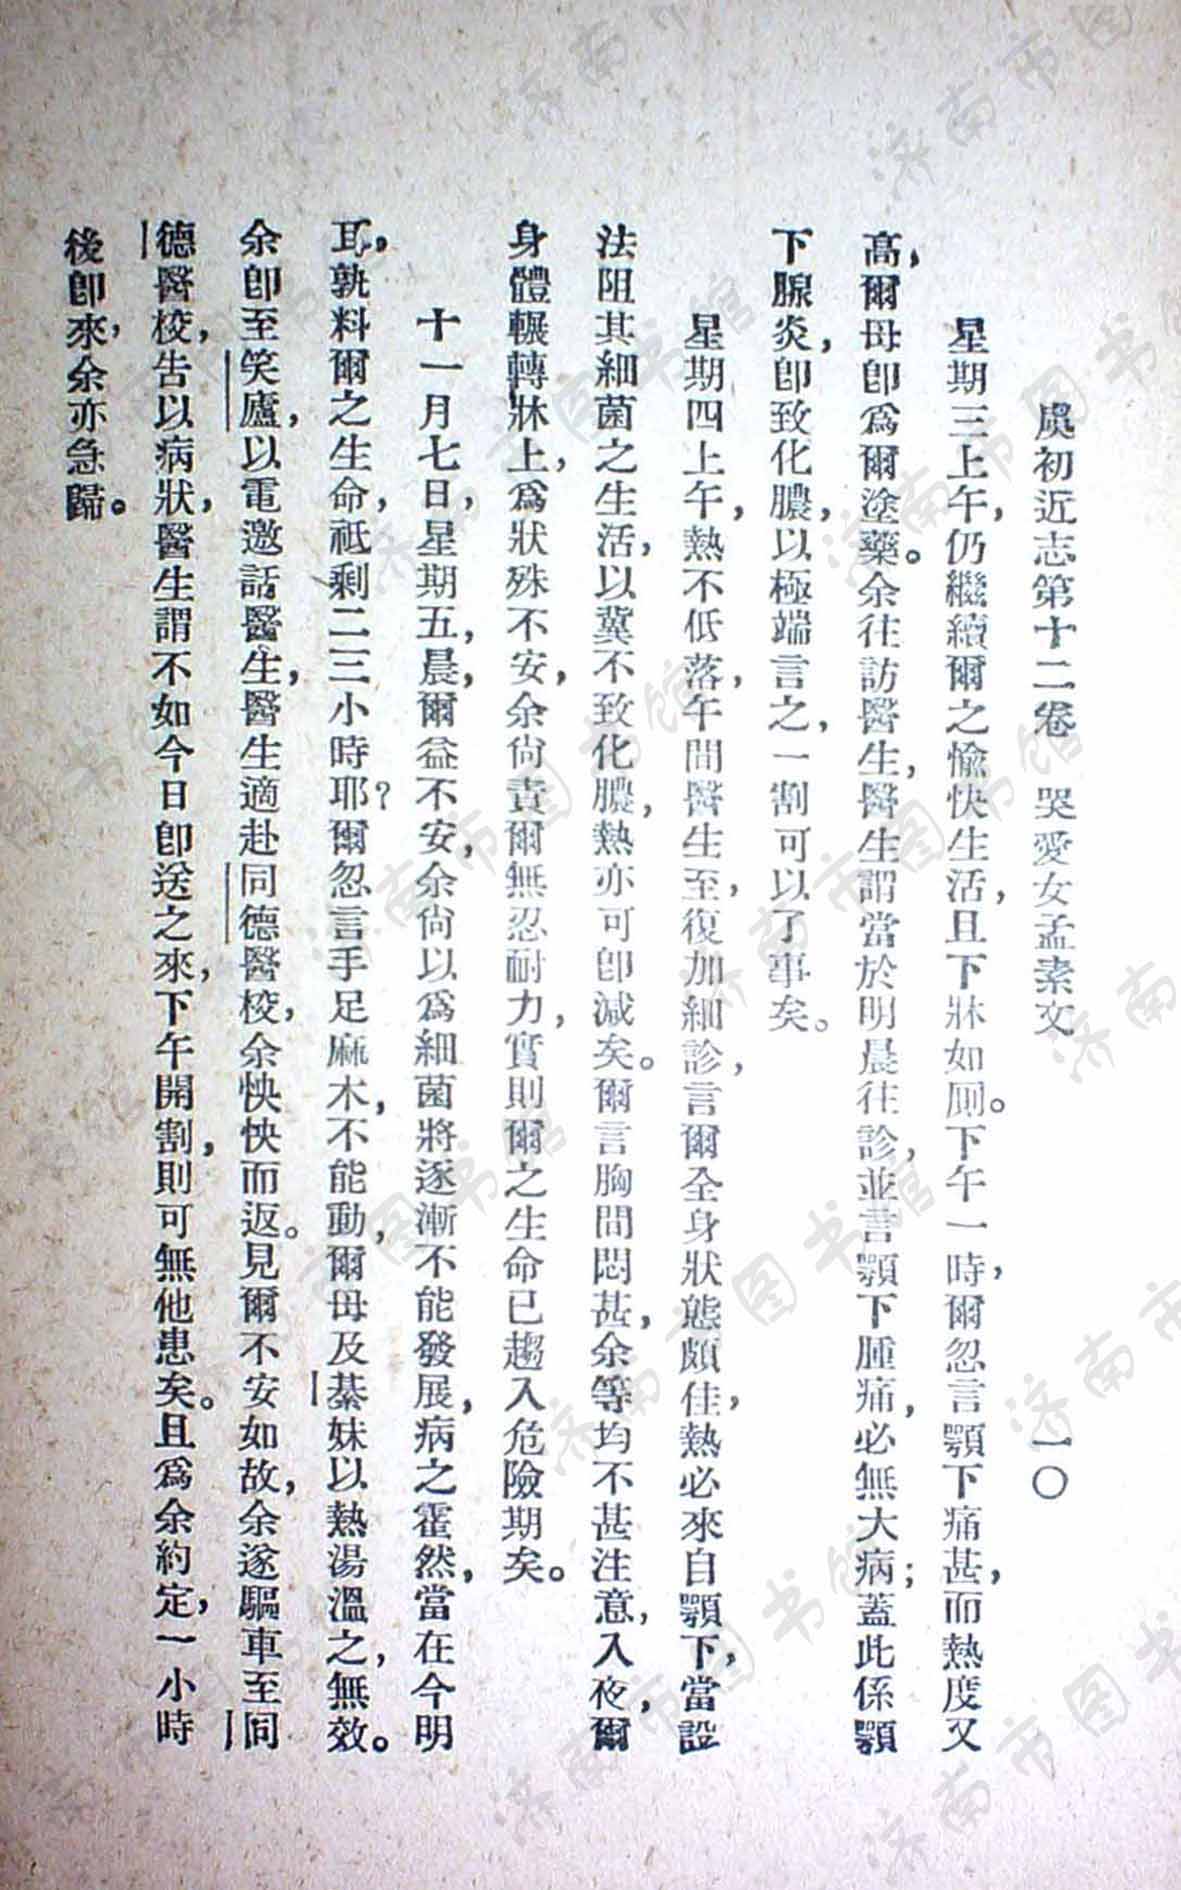 虞初近志第十二卷 哭愛女孟素文 一〇
星期三上午，仍繼續爾之愉快生活，且下牀如厠。下午一時，爾忽言顎下痛甚，而熱度又
高，爾母卽爲爾塗藥。余往訪醫生，醫生謂當於明晨往診，並言顎下腫痛，必無大病；蓋此係顎
下腺炎，卽致化膿，以極端言之，一割可以了事矣。
星期四上午，熱不低落，午間醫生至，復加細診，言爾全身狀態頗佳，熱必來自顎下，當設
法阻其細菌之生活，以冀不致化膿，熱亦可卽減矣。爾言胸間悶甚，余等均不甚注意，入夜，爾
身體輾轉牀上，爲狀殊不安，余尙責爾無忍耐力，實則爾之生命已趨入危險期矣。
十一月七日，星期五，晨，爾益不安，余尙以爲細菌將逐漸不能發展，病之霍然，當在今明
耳，孰料爾之生命，祗剩二三小時耶？爾忽言手足麻木，不能動，爾母及綦妹以熱湯溫之，無效。
余卽至笑廬，以電邀話醫生，醫生適赴同德醫校，余怏怏而返。見爾不安如故，余遂驅車至同
德醫校，告以病狀，醫生謂不如今日卽送之來，下午開割，則可無他患矣。且爲余約定，一小時
後卽來，余亦急歸。
济南市图书馆